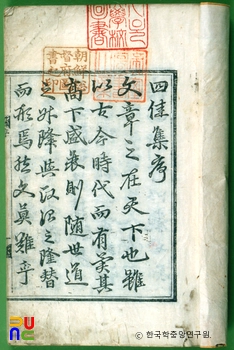 四佳集序
文章之在天下也雖
以古今時代而有異其
高下盛衰則随世道
之升降與治之隆替
而形焉文莫難乎
朝鮮總
督府圖
書之印
© 한국학중앙연구원